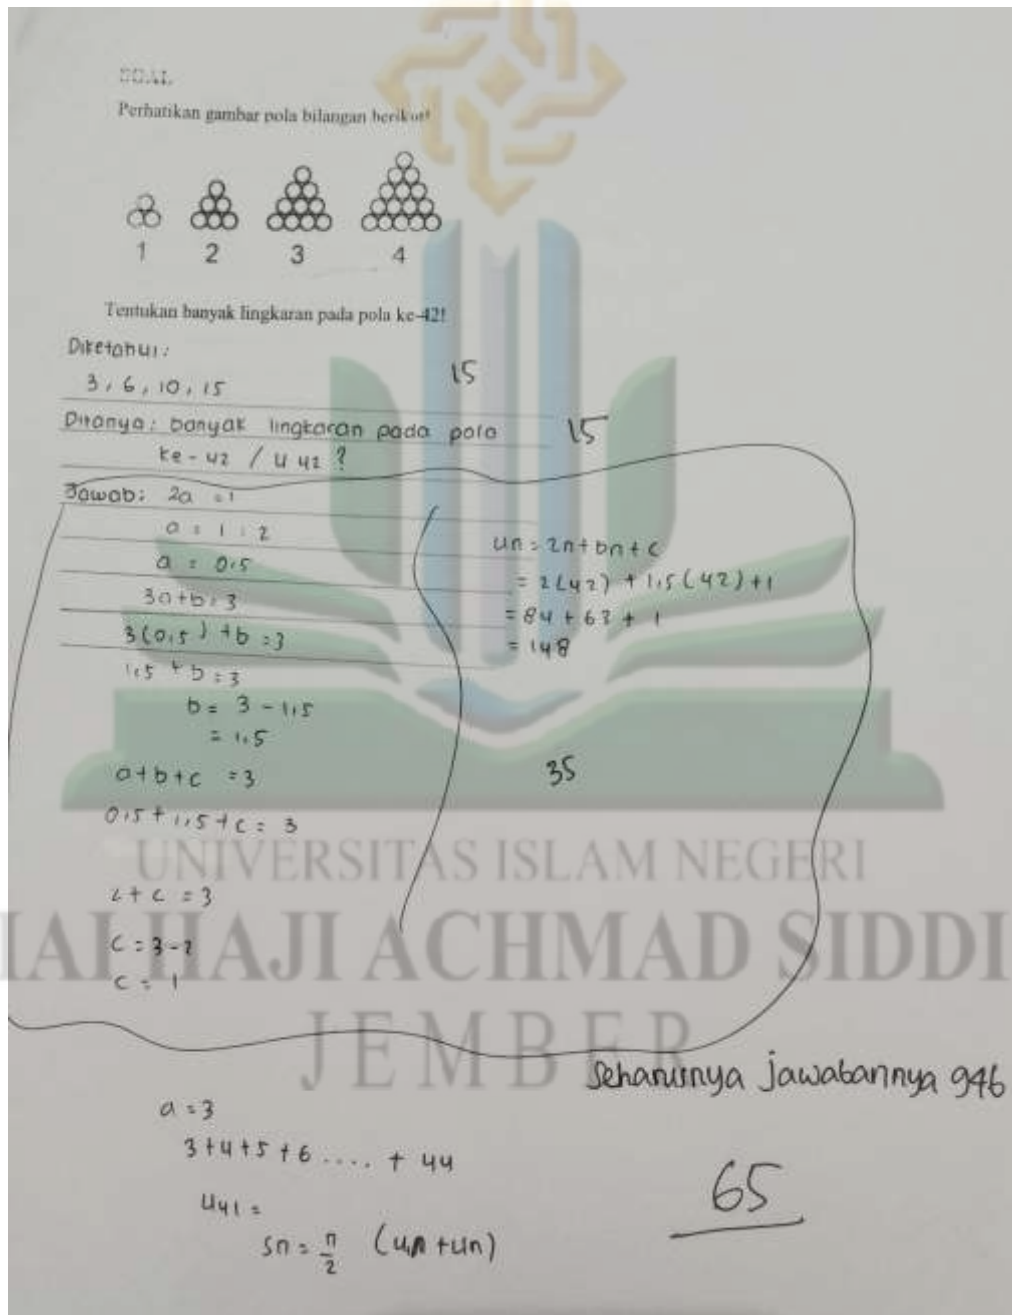 SOAL
Perhatikan gambar pola bilangan berikut!
1 2 3 4
Tentukan banyak lingkaran pada pola ke-42!
Diketahui:
3, 6, 10, 15
15
Ditanya: banyak lingkaran pada pola
15
ke-42 / U 42 ?
Jawab: 2a = 1
a = 1 : 2
a = 0.5
3a+b=3
3(0,5) + b = 3
1,5 + b = 3
b = 3 - 1,5
= 1.5
a+b+c = 3
0,5 + 1,5 + c = 3
2 + c = 3
c = 3-2
c = 1
Un = 2n + bn + c
= 2(42) + 1,5(42)+1
= 84 + 63 + 1
= 148
35
UNIVERSITAS ISLAM NEGERI
IAI HAJI ACHMAD SIDDI
JEMBER
Seharusnya jawabannya 946
a = 3
3+4+5+6 .... + 44
U41 =
Sn = n/2 (U1 + Un)
65